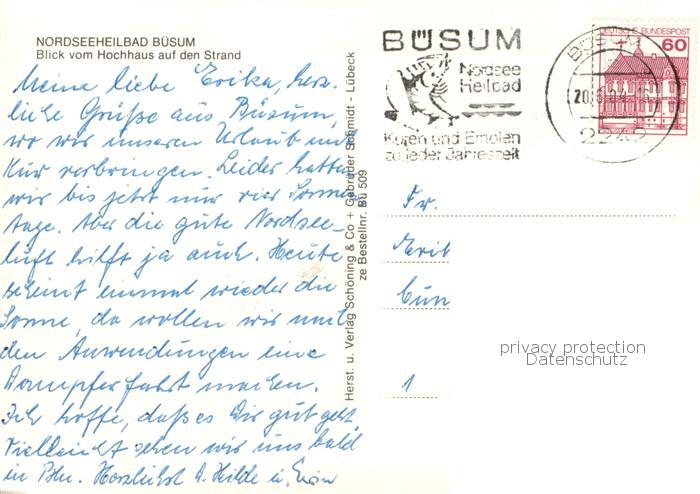 NORDSEEHEILBAD BÜSUM
Blick vom Hochhaus auf den Strand
Meine liebe Erika, herz-
liche Grüße aus Büsum,
wo wir unseren Urlaub und
Kur verbringen. Leider hatten
wir bis jetzt nur vier Sonnen-
tage. Aber die gute Nordsee-
luft hilft ja auch. Heute
scheint einmal wieder die
Sonne, da wollen wir nach
den Anwendungen eine
Dampferfahrt machen.
Ich hoffe, daß es Dir gut geht,
Vielleicht sehen wir uns bald
in Bln. Herzlichst D. Hilde u.
Herst. u. Verlag Schöning & Co + Gebrüder Schmidt - Lübeck
ze Bestellnr. Bü 509
BÜSUM
Nordsee
Heilbad
Kuren und Erholen
zu jeder Jahreszeit
BÜSUM
20.6.84
2242
DEUTSCHE BUNDESPOST
60
Fr.
Erik
1
privacy protection
Datenschutz